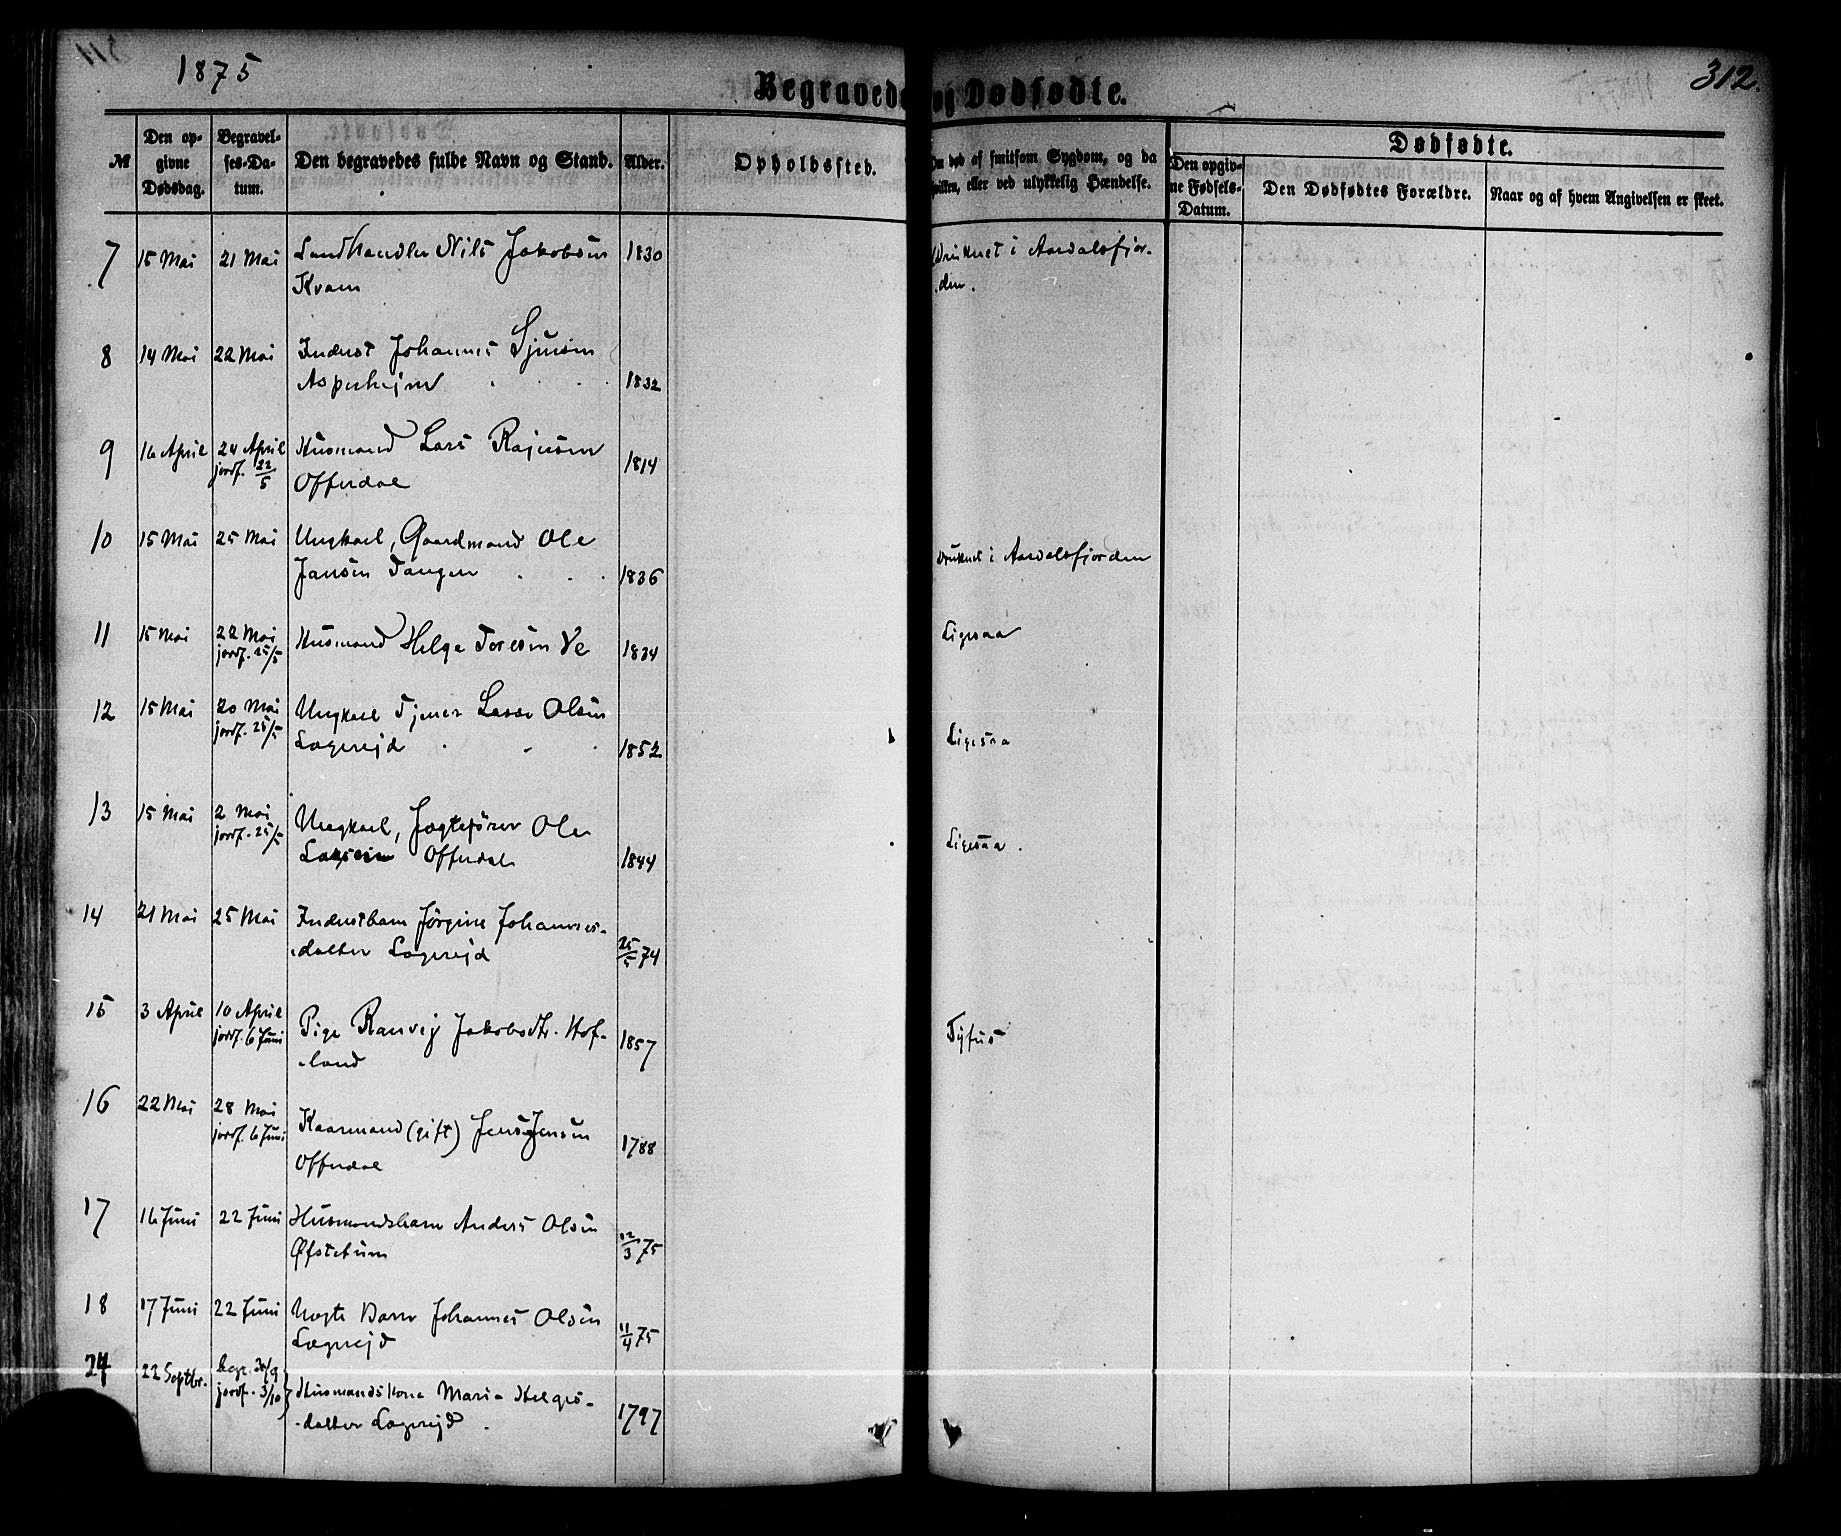 1875
Begravede og Dødfødte.
312.
№
Den opgivne Dødsdag.
Begravelses-Datum.
Den begravedes fulde Navn og Stand.
Alder.
Opholdssted.
Om død af smitsom Sygdom, og da hvilken, eller ved ulykkelig Hændelse.
Dødfødte.
Den opgivne Fødsels-Datum.
Den Dødfødtes Forældre.
Naar og af hvem Angivelsen er skeet.
7 15 Mai 21 Mai Landhandler Nils Jakobsen 1830 Druknet i Aardalsfjor-
Kvam -den.
8 14 Mai 22 Mai Inderst Johannes Sjursen
Asperheim 1832
9 16 April 24 April Husmand Lars Rajersen 1814
jordf. 22/5 Offerdal
10 15 Mai 25 Mai Ungkarl, Gaardmand Ole Druknet i Aardalsfjorden
Jansen Tangen 1836
11 15 Mai 22 Mai Husmand Helge Toresen Ve 1834 Ligesaa
jordf. 25/5
12 15 Mai 20 Mai Ungkarl Tjener Lasse Olsen Ligesaa
jordf. 25/5 Lægrejd 1852
13 15 Mai 2 Mai Ungkarl, Jægtefører Ole Ligesaa.
jordf. 25/5 Larsen Offerdal 1844
14 21 Mai 25 Mai Inderstbarn Jørgine Johannes-
-datter Lægrejd 25/5 74
15 3 April 10 April Pige Ranvej Jakobsdtr. Hof- 1857 Tyfus
jordf. 6 Juni -land
16 22 Mai 28 Mai Kaarmand (gift) Jens Jensen 1788
jordf. 6 Juni Offerdal
17 16 Juni 22 Juni Husmandsbarn Anders Olsen
Øfstetun 12/3 75
18 17 Juni 22 Juni Uægte Barn Johannes Olsen
Lægrejd 11/4 75
24 22 Septbr. begr. 30/9
jordf. 3/10 Husmandskone Maria Helges- 1797
-datter Lægrejd.